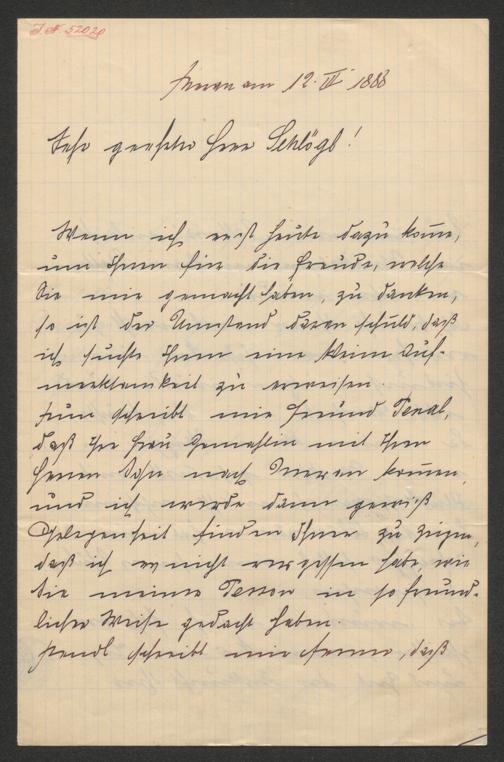 J.N. 52020
Meran am 12. IV 1888
Sehr geehrter Herr Schlögl!
Wenn ich erst heute dazu kom̄e,
um Ihnen für die Freude, welche
Sie mir gemacht haben, zu danken,
so ist der Umstand daran schuld, daß
ich suchte Ihnen eine kleine Auf-
merksamkeit zu erweisen.
Nun schreibt mir Freund
daß Ihre Frau Gemahlin mit Ihrem
Herrn Sohn nach Meran kom̄en,
und ich werde dann gewiß
Gelegenheit finden Ihnen zu zeigen,
daß ich es nicht vergessen habe, wie
Sie meiner Person in so freund-
licher Weise gedacht haben.
schreibt mir ferner, daß